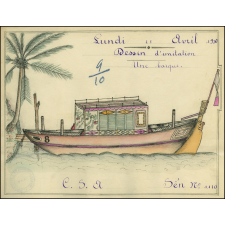 Lundi 11 Avril
Dessin d'imitation
Une barque
9
10
8
C. S. A